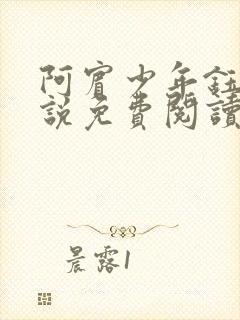 阿賓少年鈺
說免費閱讀
晨露1